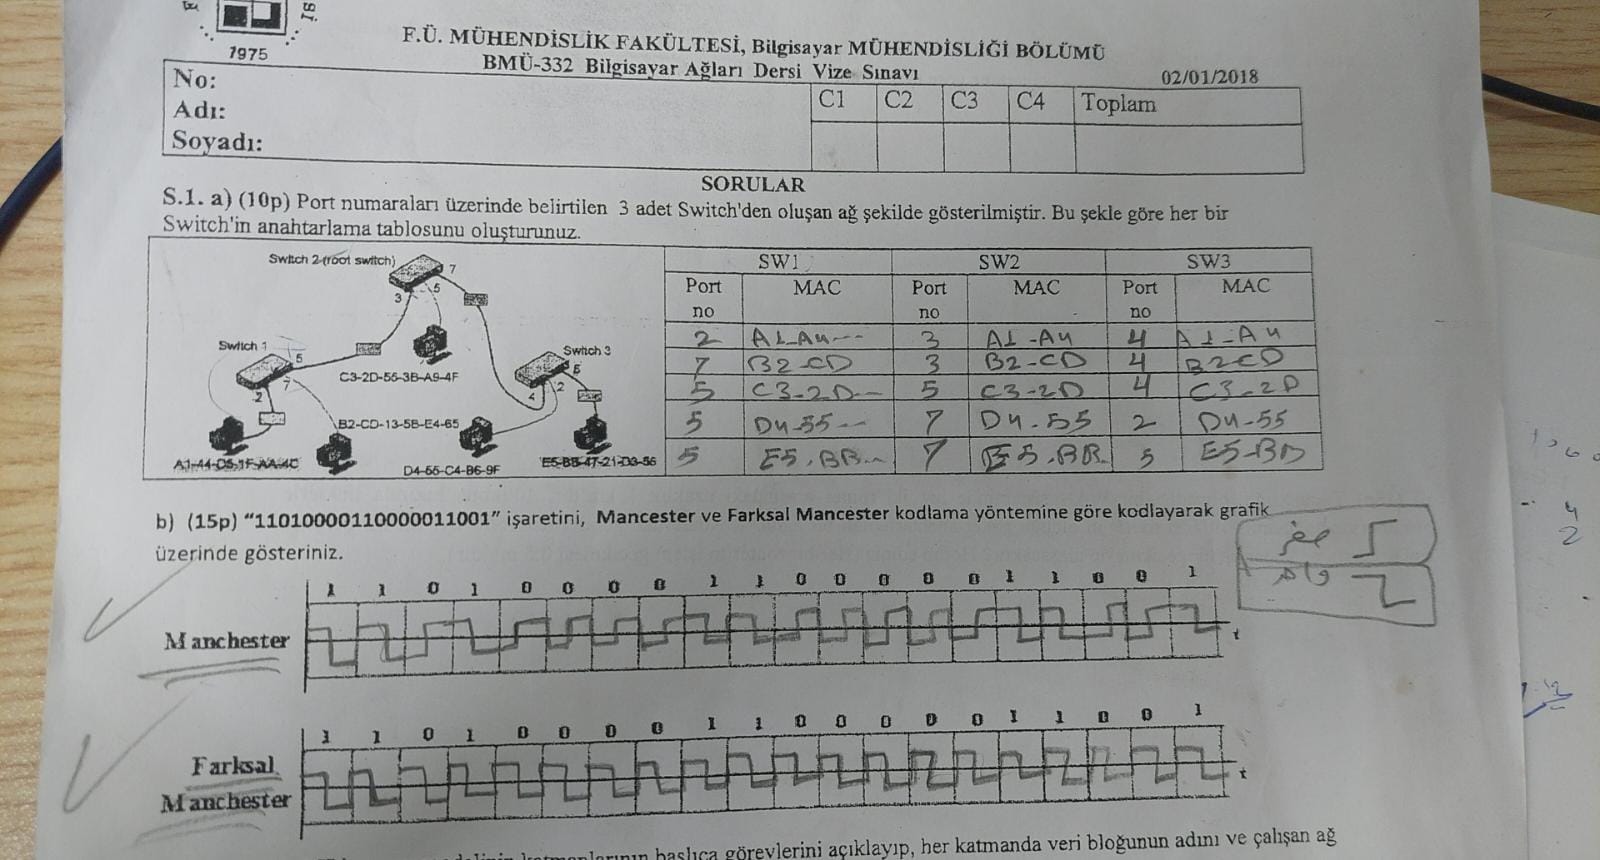 1975
F.Ü. MÜHENDİSLİK FAKÜLTESİ, Bilgisayar MÜHENDİSLİĞİ BÖLÜMÜ
BMÜ-332 Bilgisayar Ağları Dersi Vize Sınavı
02/01/2018
No:
Adı:
Soyadı:
C1 C2 C3 C4 Toplam
SORULAR
S.1. a) (10p) Port numaraları üzerinde belirtilen 3 adet Switch'den oluşan ağ şekilde gösterilmiştir. Bu şekle göre her bir
Switch'in anahtarlama tablosunu oluşturunuz.
Switch 2 (root switch)
7
3 5
Switch 1
5
7
2
C3-2D-55-3B-A9-4F
Switch 3
5
2
4
B2-CD-13-5B-E4-65
A1-44-D5-1F-AA-4C
D4-55-C4-B6-9F
E5-BB-47-21-D3-56
SW1 SW2 SW3
Port no MAC Port no MAC Port no MAC
2 A1-A4--- 3 A1-A4 4 A1-A4
7 B2-CD 3 B2-CD 4 B2CD
5 C3-2D-- 5 C3-2D 4 C3-2D
5 D4-55-- 7 D4-55 2 D4-55
5 E5.BB-- 7 E5.BB. 5 E5-BB
b) (15p) "11010000110000011001" işaretini, Mancester ve Farksal Mancester kodlama yöntemine göre kodlayarak grafik
üzerinde gösteriniz.
صفر
واحد
1 1 0 1 0 0 0 0 1 1 0 0 0 0 0 1 1 0 0 1
Manchester
t
1 1 0 1 0 0 0 0 1 1 0 0 0 0 0 1 1 0 0 1
Farksal
Manchester
t
katmanlarının başlıca görevlerini açıklayıp, her katmanda veri bloğunun adını ve çalışan ağ